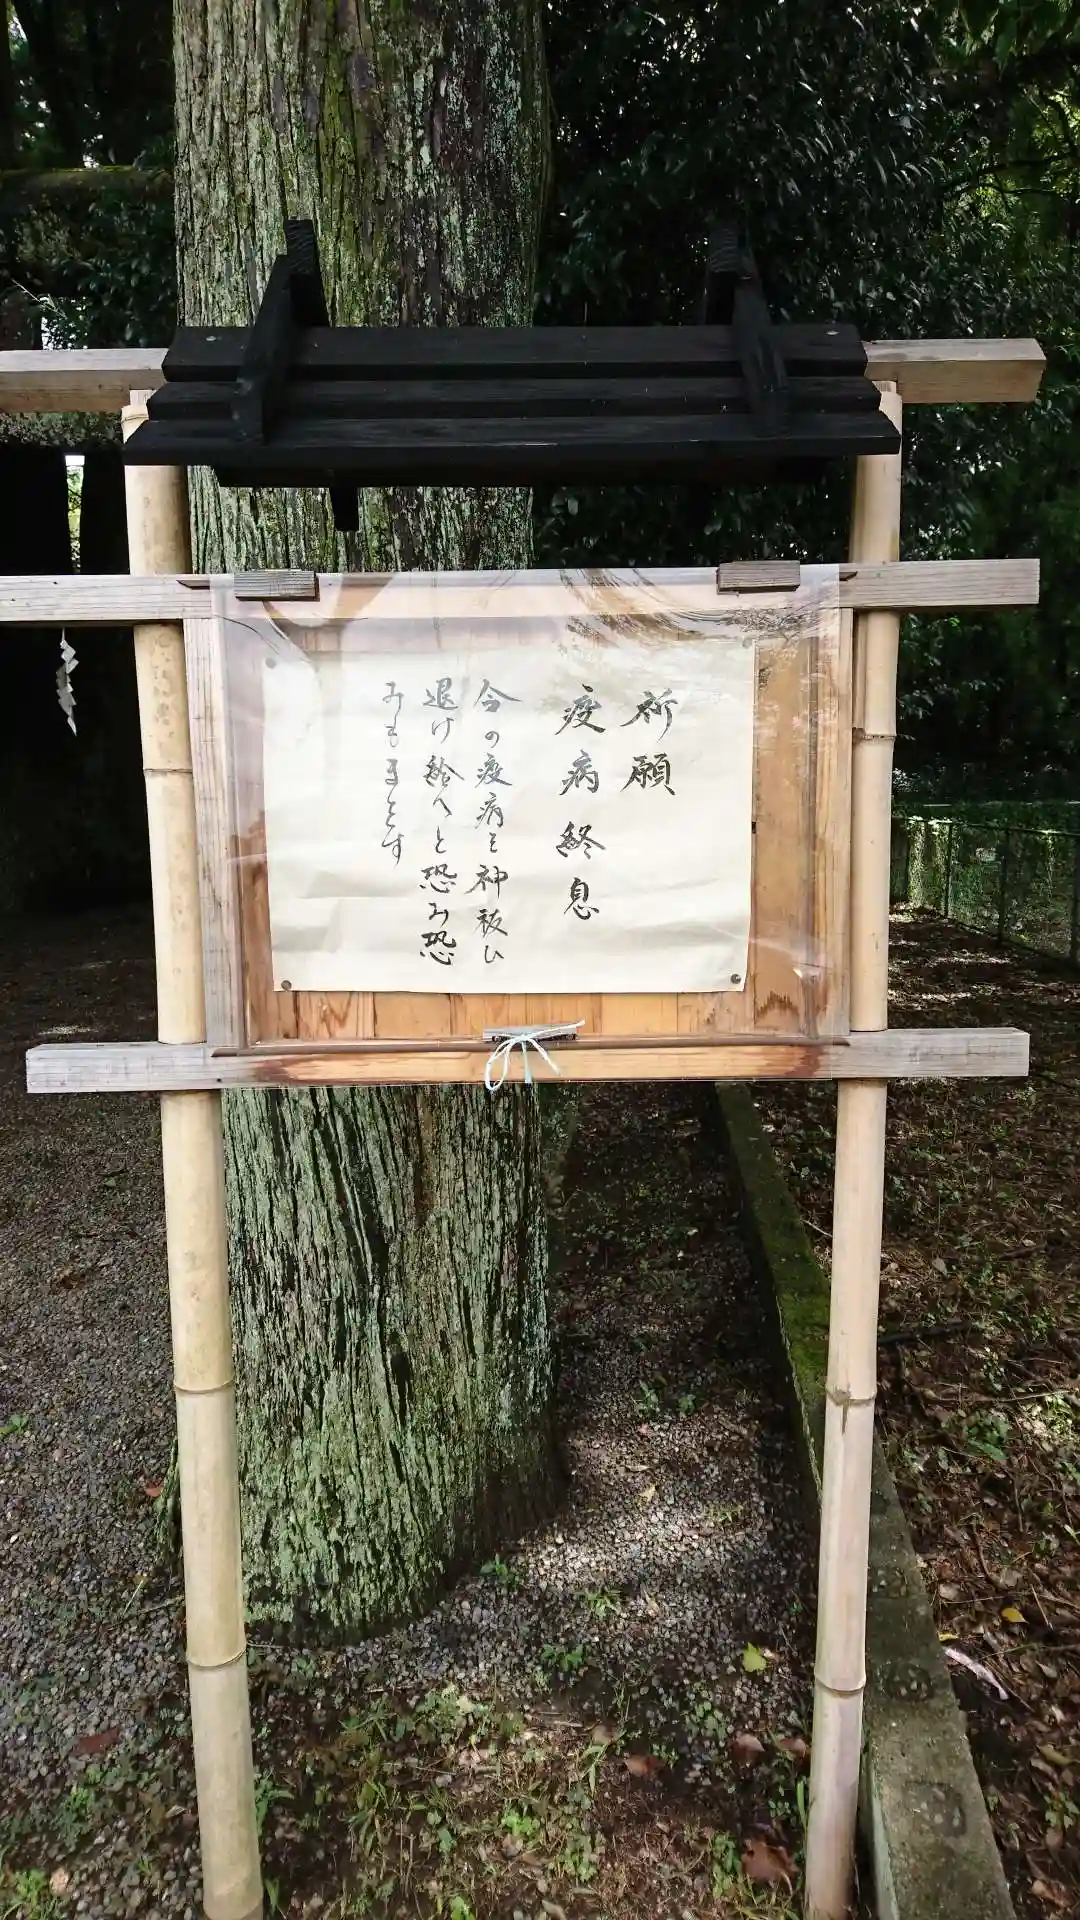 祈願
疫病終息
今の疫病を神祓ひ
退け給へと恐み恐
みもまをす